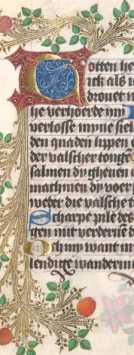 Totten he
ick als ic
drouet w
he verhoerde my
verlosse myne siel
den quaden lippen
der valscher tonge
salmen dy gheuen
machmen dy voer
weder die valsche t
Scharpe pile des
gen mit verderuen d
Och my want m
lendige wanderin